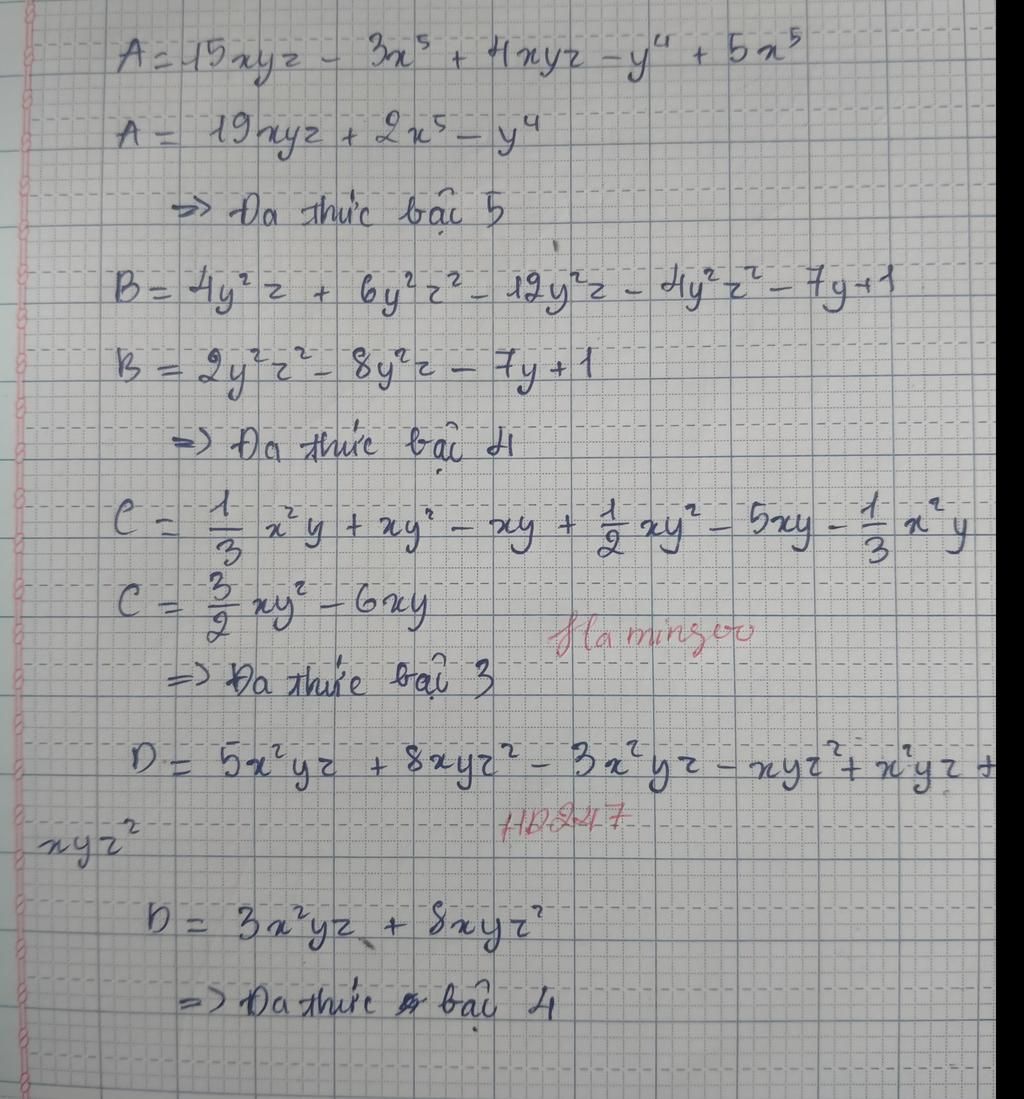 A = 15xyz - 3x⁵ + 4xyz - y⁴ + 5x⁵
A = 19xyz + 2x⁵ - y⁴
=> Đa thức bậc 5
B = 4y²z + 6y²z² - 12y²z - 4y²z² - 7y + 1
B = 2y²z² - 8y²z - 7y + 1
=> Đa thức bậc 4
C = 1/3 x²y + xy² - xy + 1/2 xy² - 5xy - 1/3 x²y
C = 3/2 xy² - 6xy
Flamingoo
=> Đa thức bậc 3
D = 5x²yz + 8xyz² - 3x²yz - xyz² + x²yz +
HD247
xyz²
D = 3x²yz + 8xyz²
=> Đa thức bậc 4